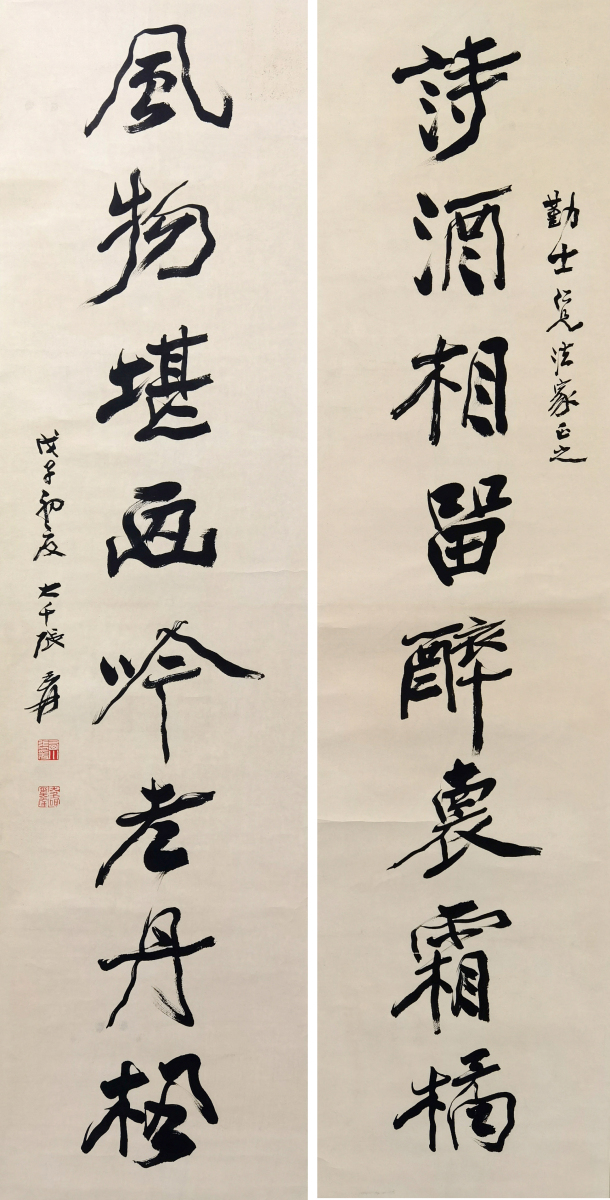 詩酒相留醉裏霜橘
勤士仁兄法家正之
風物堪画吟老丹楓
戊子初夏 大千張爰